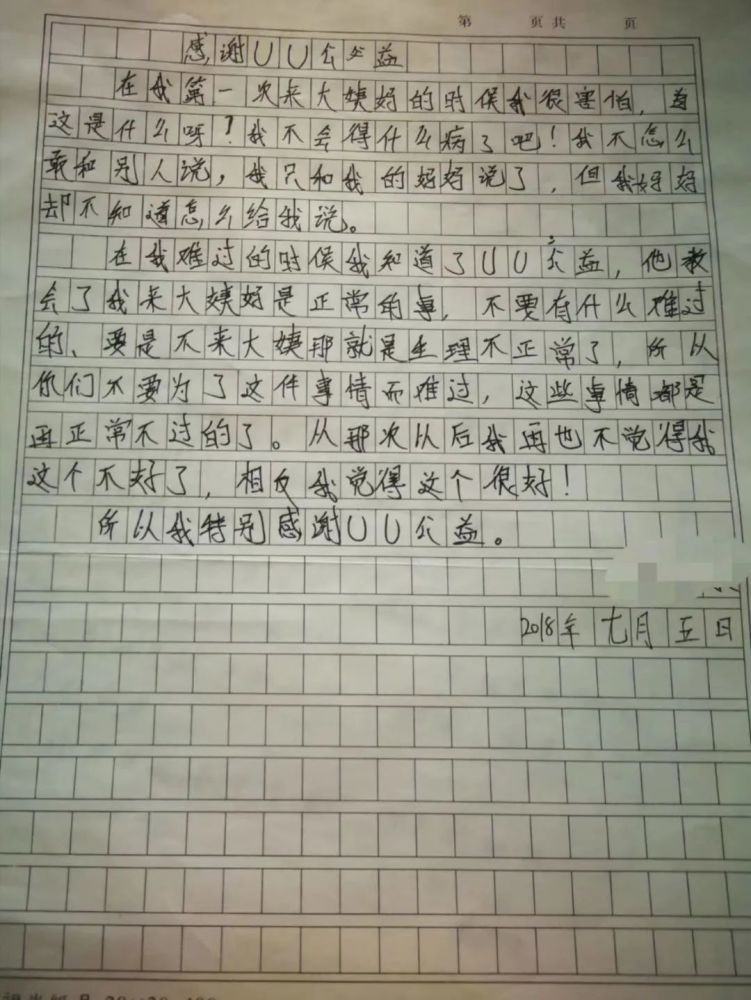 第 页 共 页
感谢UU公益
在我第一次来大姨妈的时候我很害怕,
这是什么呀?我不会得什么病了吧!我不怎么
敢和别人说,我只和我的妈妈说了,但我妈妈
却不知道怎么给我说。
在我难过的时候我知道了UU公益,他教
会了我来大姨妈是正常的事,不要有什么难过
的、要是不来大姨那就是生理不正常了,所以
你们不要为了这件事情而难过,这些事情都是
再正常不过的了。从那次以后我再也不觉得我
这个不好了,相反我觉得这个很好!
所以我特别感谢UU公益。
2018年七月五日